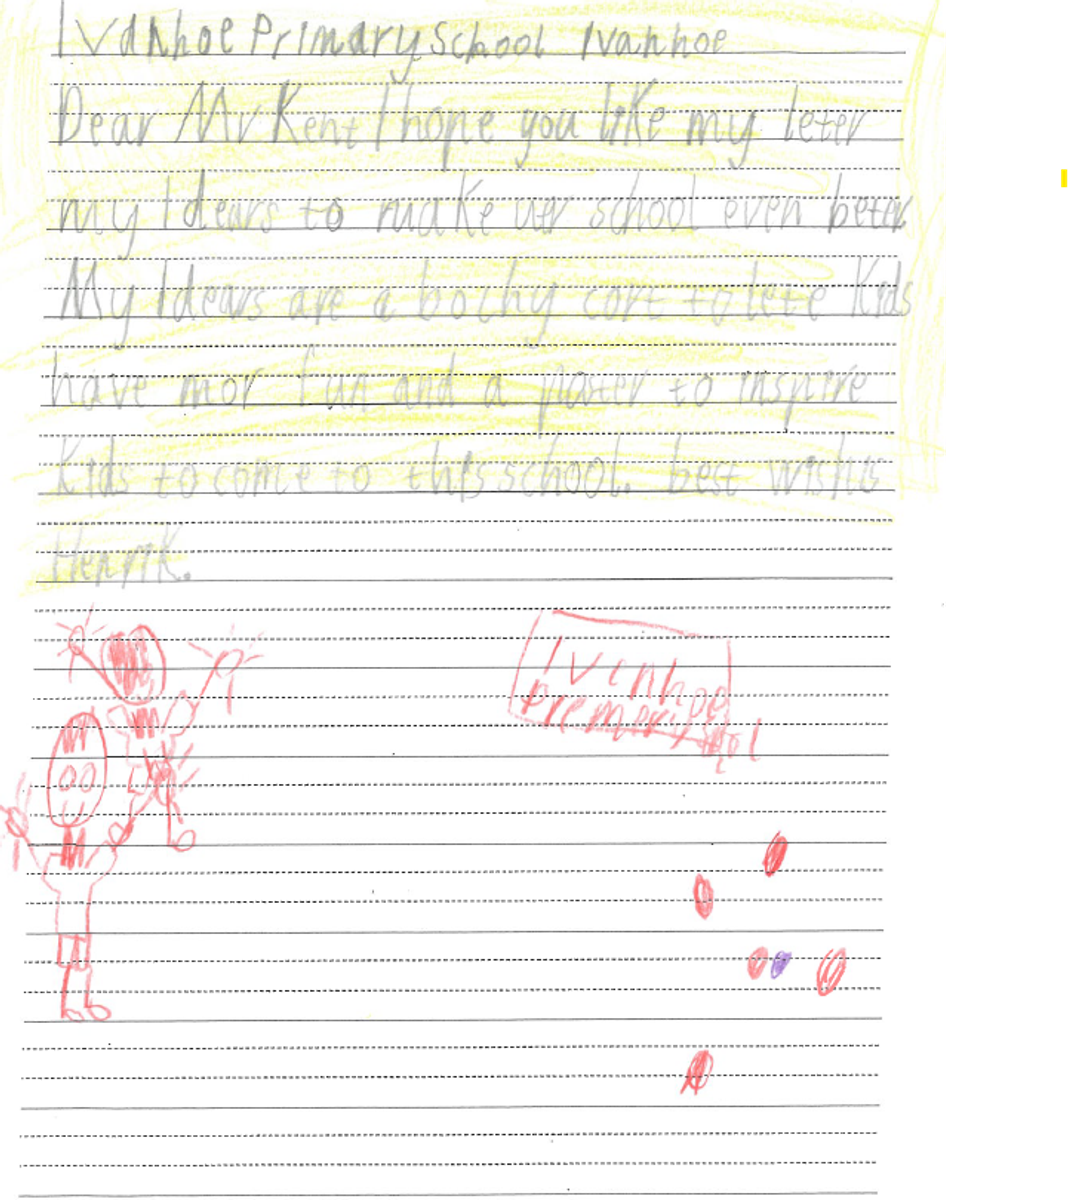 Ivanhoe Primary School Ivanhoe
Dear Mr Kent I hope you like my leter
my Idears to make uer school even beter
My Idears are a bochy cort to lete Kids
have mor fun and a poster to inspire
Kids to come to this school. best wishis
Henrik.
Ivinhoe
premery